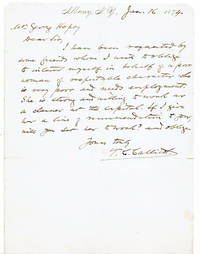 Albany, N.Y. Jan. 16, 1874.
Mr. George
Dear Sir,
I have been requested by
some friends whom I wish to oblige
to interest myself in behalf of a poor
woman of respectable character who
is very poor and needs employment.
She is strong and willing to work as
a cleaner at the capitol. If I give
her a line of recommendation to you,
will you set her to work? and oblige
Yours truly